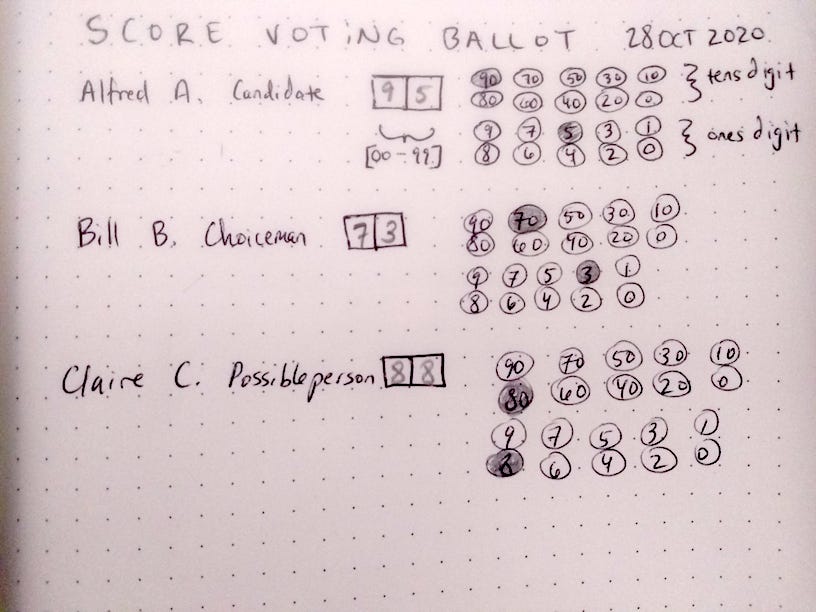 SCORE VOTING BALLOT 28 OCT 2020
Alfred A. Candidate 9 5 90 70 50 30 10 } tens digit
80 60 40 20 0
[00-99] 9 7 5 3 1 } ones digit
8 6 4 2 0
Bill B. Choiceman 7 3 90 70 50 30 10
80 60 40 20 0
9 7 5 3 1
8 6 4 2 0
Claire C. Possibleperson 8 8 90 70 50 30 10
80 60 40 20 0
9 7 5 3 1
8 6 4 2 0